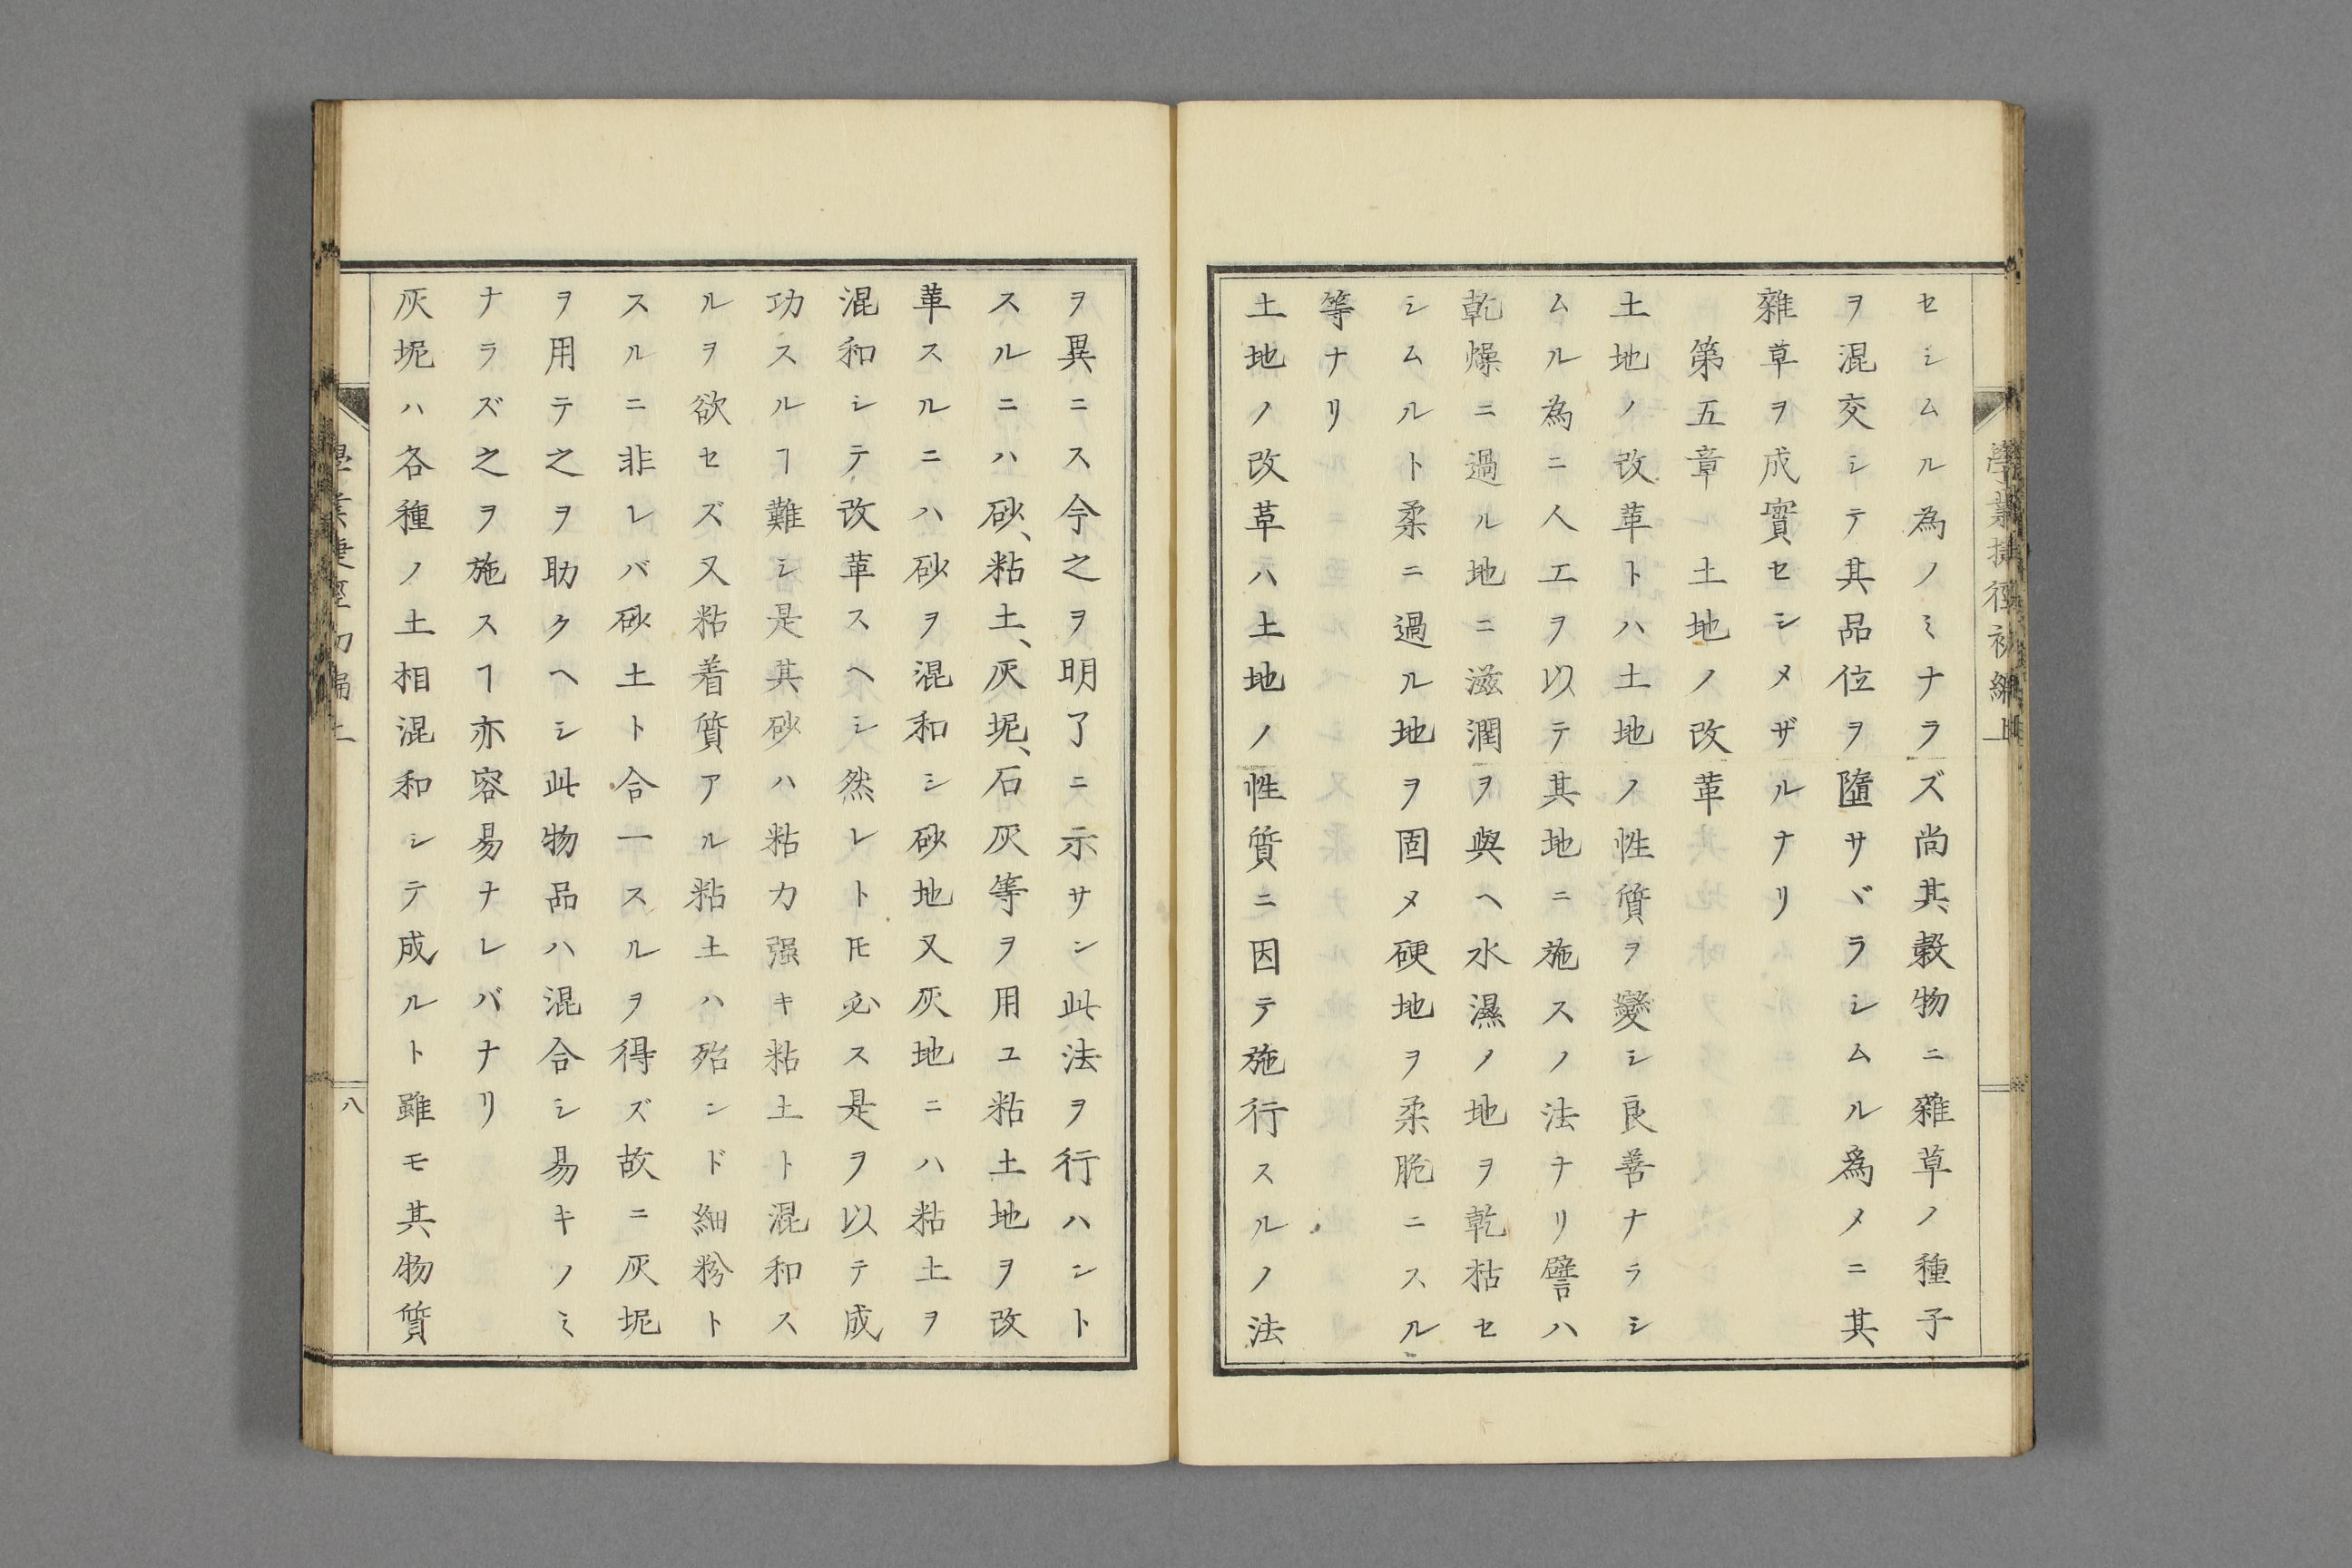 學業捷徑初編上
セシムル為ノミナラズ尚其穀物ニ雜草ノ種子
ヲ混交シテ其品位ヲ墮サヾラシムル爲メニ其
雜草ヲ成實セシメザルナリ
第五章　土地ノ改革
土地ノ改革トハ土地ノ性質ヲ變シ良善ナラシ
ムル為ニ人工ヲ以テ其地ニ施スノ法ナリ譬ハ
乾燥ニ過ル地ニ滋潤ヲ與ヘ水濕ノ地ヲ乾枯セ
シムルト柔ニ過ル地ヲ固メ硬地ヲ柔脆ニスル
等ナリ
土地ノ改革ハ土地ノ性質ニ因テ施行スルノ法
ヲ異ニス今之ヲ明了ニ示サン此法ヲ行ハント
スルニハ砂、粘土、灰坭、石灰等ヲ用ユ粘土地ヲ改
革スルニハ砂ヲ混和シ砂地又灰地ニハ粘土ヲ
混和シテ改革スヘシ然レトモ必ス是ヲ以テ成
功スルヿ難シ是其砂ハ粘力强キ粘土ト混和ス
ルヲ欲セズ又粘着質アル粘土ハ殆ンド細粉ト
スルニ非レバ砂土ト合一スルヲ得ズ故ニ灰坭
ヲ用テ之ヲ助クヘシ此物品ハ混合シ易キノミ
ナラズ之ヲ施スヿ亦容易ナレバナリ
灰坭ハ各種ノ土相混和シテ成ルト雖モ其物質
八